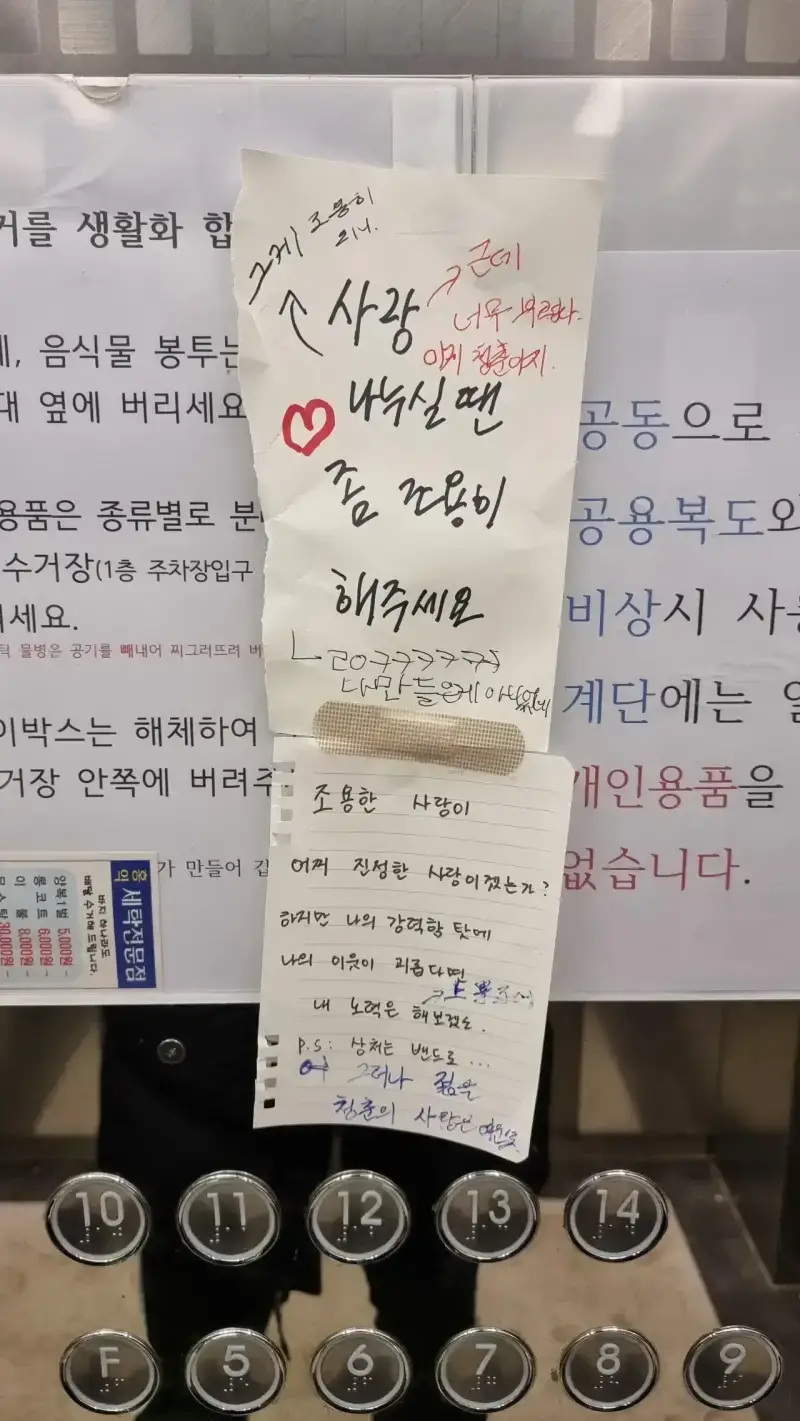 거를 생활화 합
음식물 봉투는
대 옆에 버리세요
용품은 종류별로 분
수거장(1층 주차장입구
세요.
물병은 공기를 빼내어 찌그러뜨려 버
이박스는 해체하여
거장 안쪽에 버려주
가 만들어 갑
그게 조용히
되냐.
사랑
나누실 땐
좀 조용히
해주세요
근데
너무
이게 청춘이지.
ㄴ ㄹㅇㅋㅋㅋㅋㅋㅋ
나만 들은게 아니였네
조용한 사랑이
어찌 진성한 사랑이겠는가?
하지만 나의 강력함 탓에
나의 이웃이 괴롭다면
내 노력은 해보겠소.
P.S: 상처는 밴드로...
그러나 젊은
청춘의 사랑은
공동으로
공용복도와
비상시 사용
계단에는
개인용품을
없습니다.
세탁전문점
바지 하나라도
배달 수거해 드립니다.
양복1벌 5,000원~
롱코트 6,000원~
이불 8,000원~
30,000원~
10 11 12 13 14
F 5 6 7 8 9